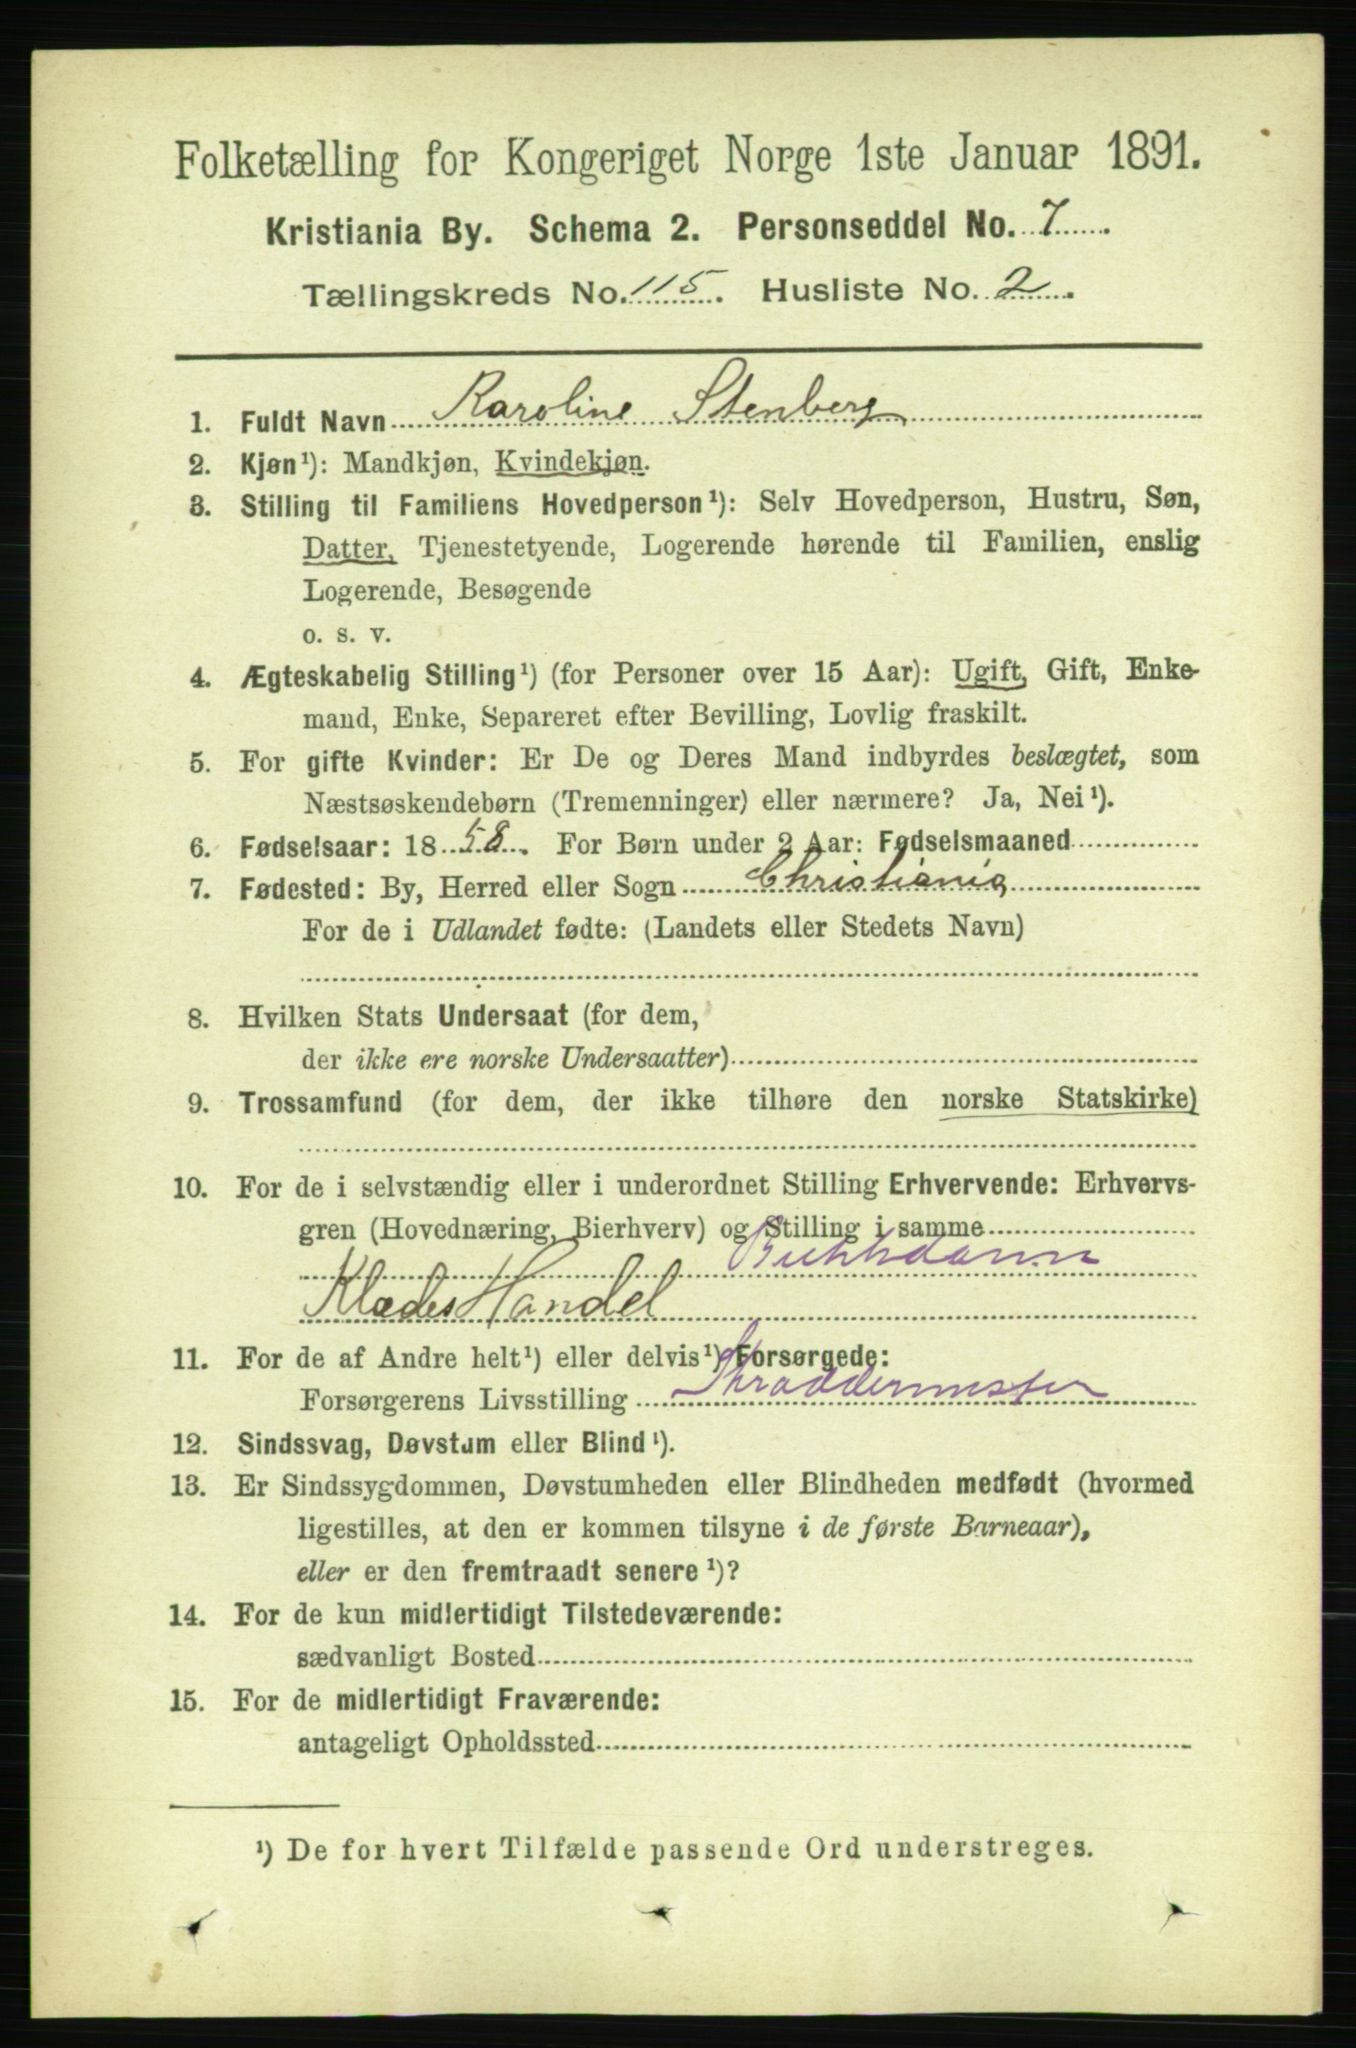 Folketælling for Kongeriget Norge 1ste Januar 1891.
Kristiania By. Schema 2. Personseddel No. 7
Tællingskreds No. 115. Husliste No. 2.
1. Fuldt Navn Karoline Stenberg
2. Kjøn¹): Mandkjøn, Kvindekjøn.
3. Stilling til Familiens Hovedperson¹): Selv Hovedperson, Hustru, Søn,
Datter, Tjenestetyende, Logerende hørende til Familien, enslig
Logerende, Besøgende
o. s. v.
4. Ægteskabelig Stilling¹) (for Personer over 15 Aar): Ugift, Gift, Enke-
mand, Enke, Separeret efter Bevilling, Lovlig fraskilt.
5. For gifte Kvinder: Er De og Deres Mand indbyrdes beslægtet, som
Næstsøskendebørn (Tremenninger) eller nærmere? Ja, Nei¹).
6. Fødselsaar: 1858. For Børn under 2 Aar: Fødselsmaaned
7. Fødested: By, Herred eller Sogn Christiania
For de i Udlandet fødte: (Landets eller Stedets Navn)
8. Hvilken Stats Undersaat (for dem,
der ikke ere norske Undersaatter)
9. Trossamfund (for dem, der ikke tilhøre den norske Statskirke)
10. For de i selvstændig eller i underordnet Stilling Erhvervende: Erhvervs-
gren (Hovednæring, Bierhverv) og Stilling i samme
Klædes Handel
11. For de af Andre helt¹) eller delvis¹) Forsørgede:
Forsørgerens Livsstilling Skræddermester
12. Sindssvag, Døvstum eller Blind¹).
13. Er Sindssygdommen, Døvstumheden eller Blindheden medfødt (hvormed
ligestilles, at den er kommen tilsyne i de første Barneaar),
eller er den fremtraadt senere¹)?
14. For de kun midlertidigt Tilstedeværende:
sædvanligt Bosted
15. For de midlertidigt Fraværende:
antageligt Opholdssted
¹) De for hvert Tilfælde passende Ord understreges.